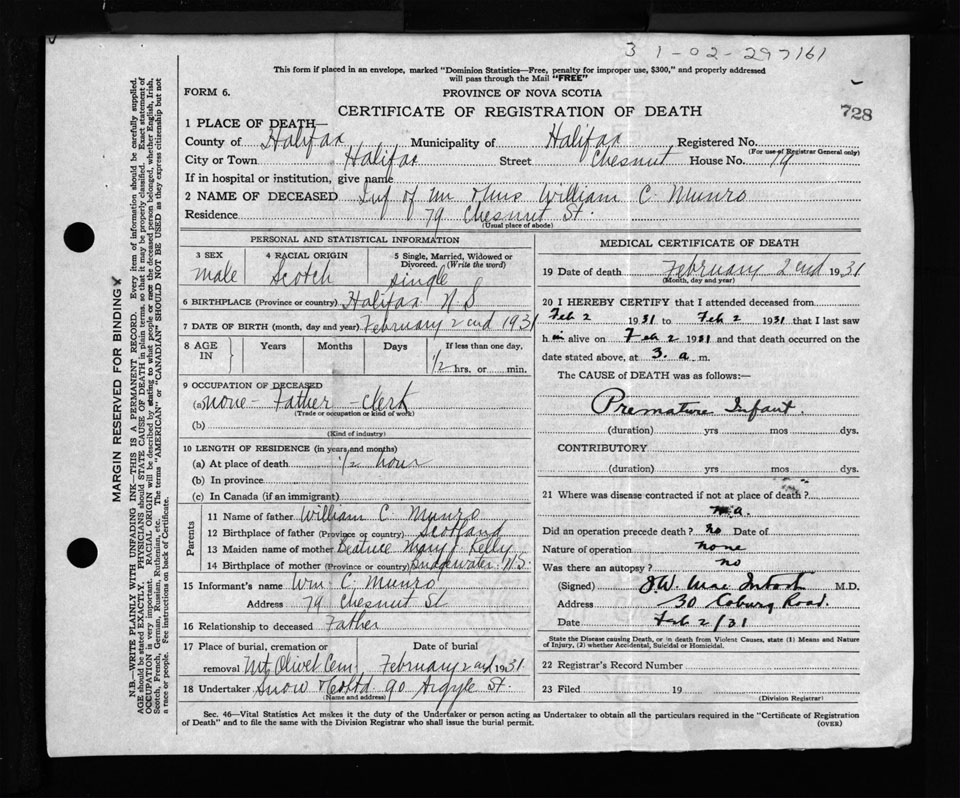 3 1-02-297161
This form if placed in an envelope, marked "Dominion Statistics—Free, penalty for improper use, $300," and properly addressed
will pass through the Mail "FREE"
FORM 6.
PROVINCE OF NOVA SCOTIA
728
CERTIFICATE OF REGISTRATION OF DEATH
1 PLACE OF DEATH—
County of Halifax Municipality of Halifax Registered No.
(For use of Registrar General only)
City or Town Halifax Street Chesnut House No. 79
If in hospital or institution, give name
2 NAME OF DECEASED Inf of Mr & Mrs William C. Munro
Residence 79 Chesnut St.
(Usual place of abode)
PERSONAL AND STATISTICAL INFORMATION
3 SEX 4 RACIAL ORIGIN 5 Single, Married, Widowed or
Divorced. (Write the word)
male Scotch single
6 BIRTHPLACE (Province or country) Halifax N S
7 DATE OF BIRTH (month, day and year) February 2nd 1931
8 AGE IN Years Months Days If less than one day,
1/2 hrs. or min.
9 OCCUPATION OF DECEASED
(a) none - Father - Clerk
(Trade or occupation or kind of work)
(b)
(Kind of industry)
10 LENGTH OF RESIDENCE (in years and months)
(a) At place of death 1/2 hour
(b) In province
(c) In Canada (if an immigrant)
Parents
11 Name of father William C. Munro
12 Birthplace of father (Province or country) Scotland
13 Maiden name of mother Beatrice Mary Kelly
14 Birthplace of mother (Province or country) Bridgewater N.S.
15 Informant's name Wm C. Munro
Address 79 Chesnut St
16 Relationship to deceased Father
17 Place of burial, cremation or Date of burial
removal Mt Olivet Cem February 2nd 1931
18 Undertaker Snow & Co Ltd 90 Argyle St.
(Name and address)
MEDICAL CERTIFICATE OF DEATH
19 Date of death February 2nd 1931
(Month, day and year)
20 I HEREBY CERTIFY that I attended deceased from
Feb 2 1931 to Feb 2 1931 that I last saw
h im alive on Feb 2 1931 and that death occurred on the
date stated above, at 3. a. m.
The CAUSE of DEATH was as follows:—
Premature Infant.
(duration) yrs mos dys.
CONTRIBUTORY
(duration) yrs mos dys.
21 Where was disease contracted if not at place of death?
n.a.
Did an operation precede death? no Date of
Nature of operation none
Was there an autopsy? no
(Signed) J.W. MacIntosh M.D.
Address 30 Coburg Road.
Date Feb 2/31
State the Disease causing Death, or in death from Violent Causes, state (1) Means and Nature
of Injury, (2) whether Accidental, Suicidal or Homicidal.
22 Registrar's Record Number
23 Filed 19
(Division Registrar)
Sec. 46—Vital Statistics Act makes it the duty of the Undertaker or person acting as Undertaker to obtain all the particulars required in the "Certificate of Registration
of Death" and to file the same with the Division Registrar who shall issue the burial permit.
(OVER)
MARGIN RESERVED FOR BINDING
N.B.—WRITE PLAINLY WITH UNFADING INK—THIS IS A PERMANENT RECORD. Every item of information should be carefully supplied.
AGE should be stated EXACTLY. PHYSICIANS should STATE CAUSE OF DEATH in plain terms, so that it may be properly classified. Exact statement of
OCCUPATION is very important. RACIAL ORIGIN will be described by stating to what people or race the deceased person belonged, whether English, Irish,
Scotch, French, German, Russian, Ruthenian, etc. The terms "AMERICAN" or "CANADIAN" SHOULD NOT BE USED as they express citizenship but not
a race or people. Fee instructions on back of Certificate.